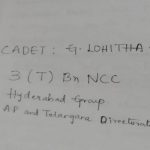 CADET : G. LOHITHA
3 (T) Bn NCC
Hyderabad Group
A.P and Telangana Directorat